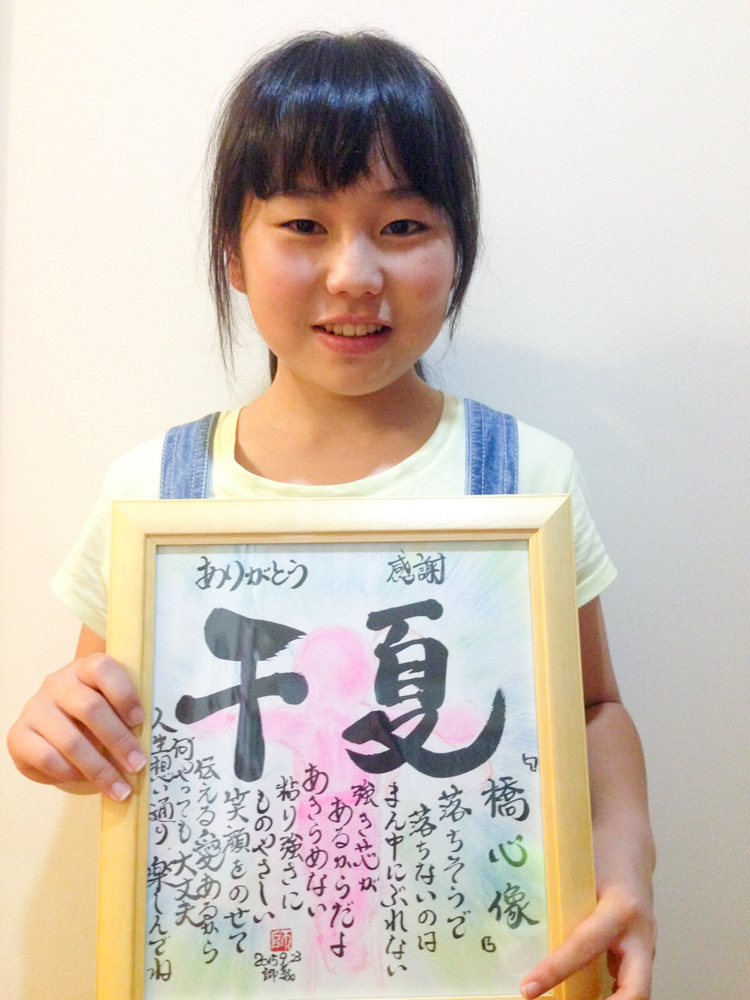 ありがとう 感謝
千夏
「橋心像」
落ちそうで
落ちないのは
まん中にぶれない
強き芯が
あるからだよ
あきらめない
粘り強さに
ものやさしい
笑顔をのせて
伝える愛あるから
何やっても大丈夫
人生想い通り楽しんでね
師
2015.9.23